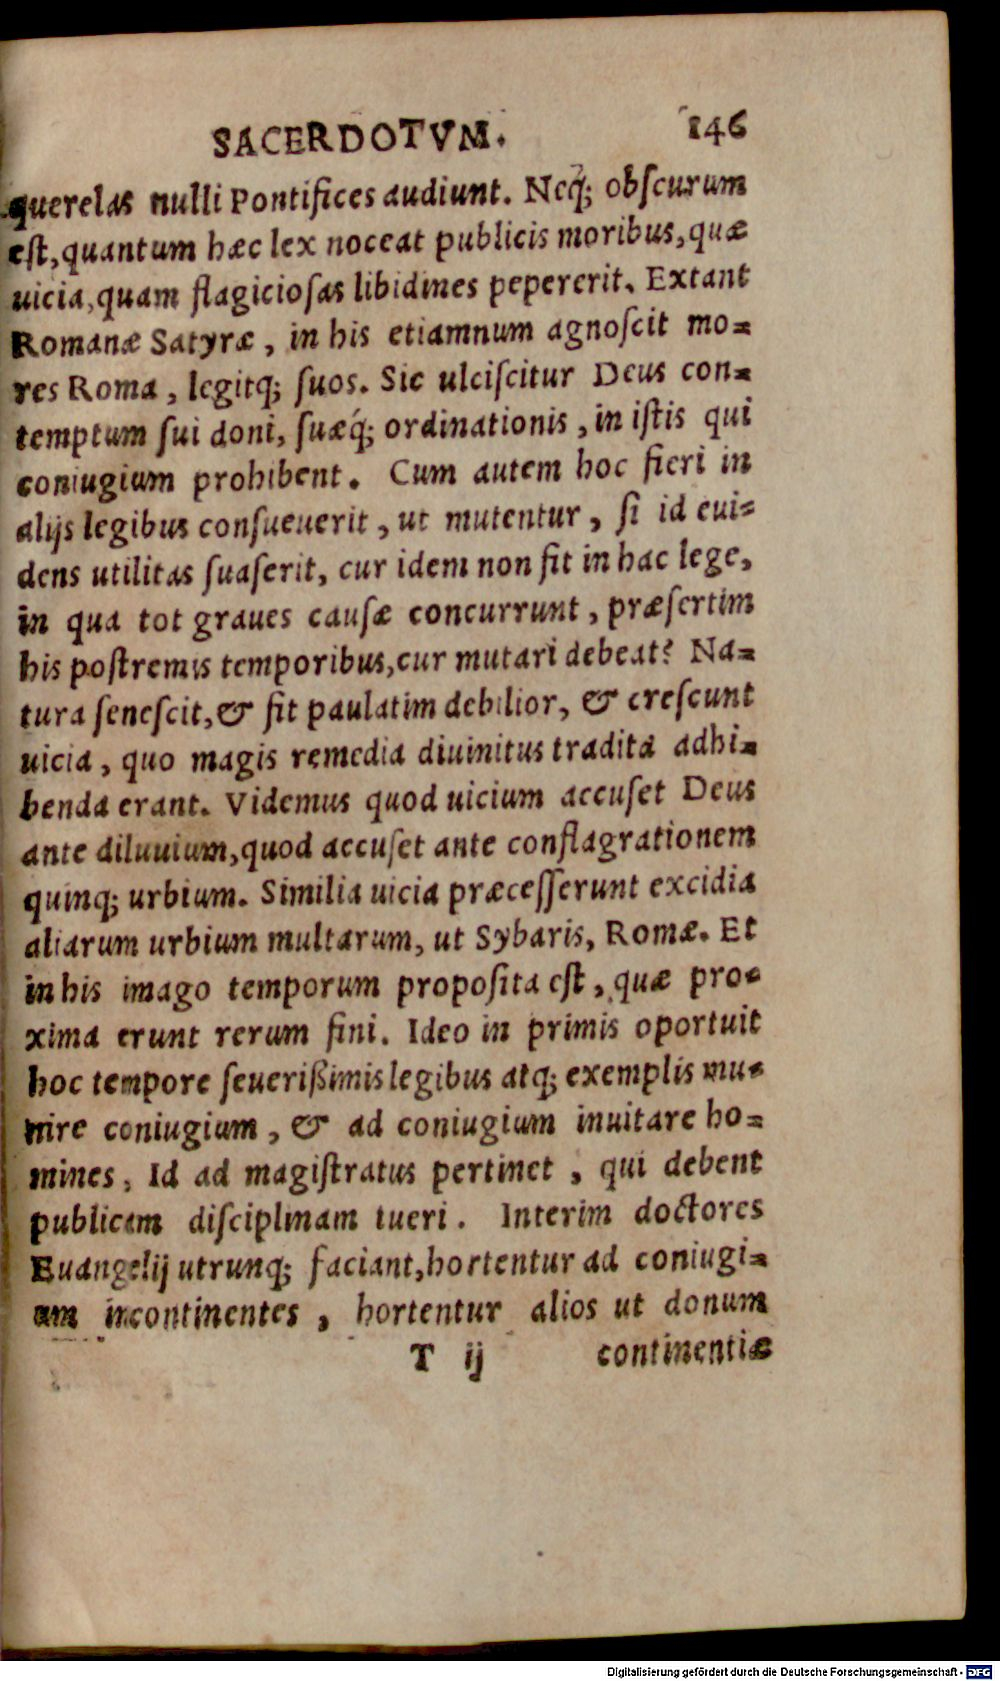 SACERDOTVM. 146
querelas nulli Pontifices audiunt. Neq́; obſcurum
eſt, quantum hæc lex noceat publicis moribus, quæ
uicia, quam flagicioſas libidines pepererit. Extant
Romanæ Satyræ, in his etiamnum agnoſcit mo=
res Roma, legitq; ſuos. Sic ulciſcitur Deus con=
temptum ſui doni, ſuæq́; ordinationis, in iſtis qui
coniugium prohibent. Cum autem hoc fieri in
alijs legibus conſueuerit, ut mutentur, ſi id eui=
dens utilitas ſuaſerit, cur idem non fit in hac lege,
in qua tot graues cauſæ concurrunt, præſertim
his poſtremis temporibus, cur mutari debeat? Na=
tura ſeneſcit, & fit paulatim debilior, & creſcunt
uicia, quo magis remedia diuinitus tradita adhi=
benda erant. Videmus quod uicium accuſet Deus
ante diluuium, quod accuſet ante conflagrationem
quinq; urbium. Similia uicia præceſſerunt excidia
aliarum urbium multarum, ut Sybaris, Romæ. Et
in his imago temporum propoſita eſt, quæ pro=
xima erunt rerum fini. Ideo in primis oportuit
hoc tempore ſeuerißimis legibus atq; exemplis mu=
nire coniugium, & ad coniugium inuitare ho=
mines, Id ad magiſtratus pertinet, qui debent
publicam diſciplinam tueri. Interim doctores
Euangelij utrunq; faciant, hortentur ad coniugi=
um incontinentes, hortentur alios ut donum
T ij continentiæ
Digitalisierung gefördert durch die Deutsche Forschungsgemeinschaft - DFG